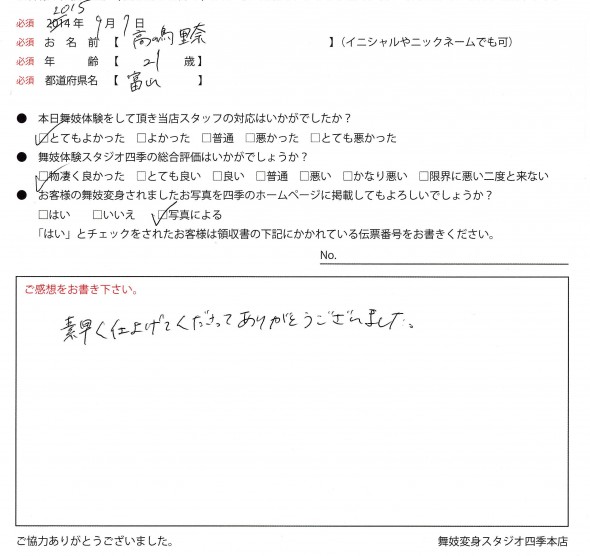 2015
必須 2014年 9月 7日
必須 お 名 前 【 高嶋里奈 】(イニシャルやニックネームでも可)
必須 年 齢 【 21 歳】
必須 都道府県名 【 富山 】
● 本日舞妓体験をして頂き当店スタッフの対応はいかがでしたか?
☑とてもよかった □よかった □普通 □悪かった □とても悪かった
● 舞妓体験スタジオ四季の総合評価はいかがでしょうか?
☑物凄く良かった □とても良い □良い □普通 □悪い □かなり悪い □限界に悪い二度と来ない
● お客様の舞妓変身されましたお写真を四季のホームページに掲載してもよろしいでしょうか?
□はい □いいえ ☑写真による
「はい」とチェックをされたお客様は領収書の下記にかかれている伝票番号をお書きください。
No.
ご感想をお書き下さい。
素早く仕上げてくださってありがとうございました。
ご協力ありがとうございました。 舞妓変身スタジオ四季本店